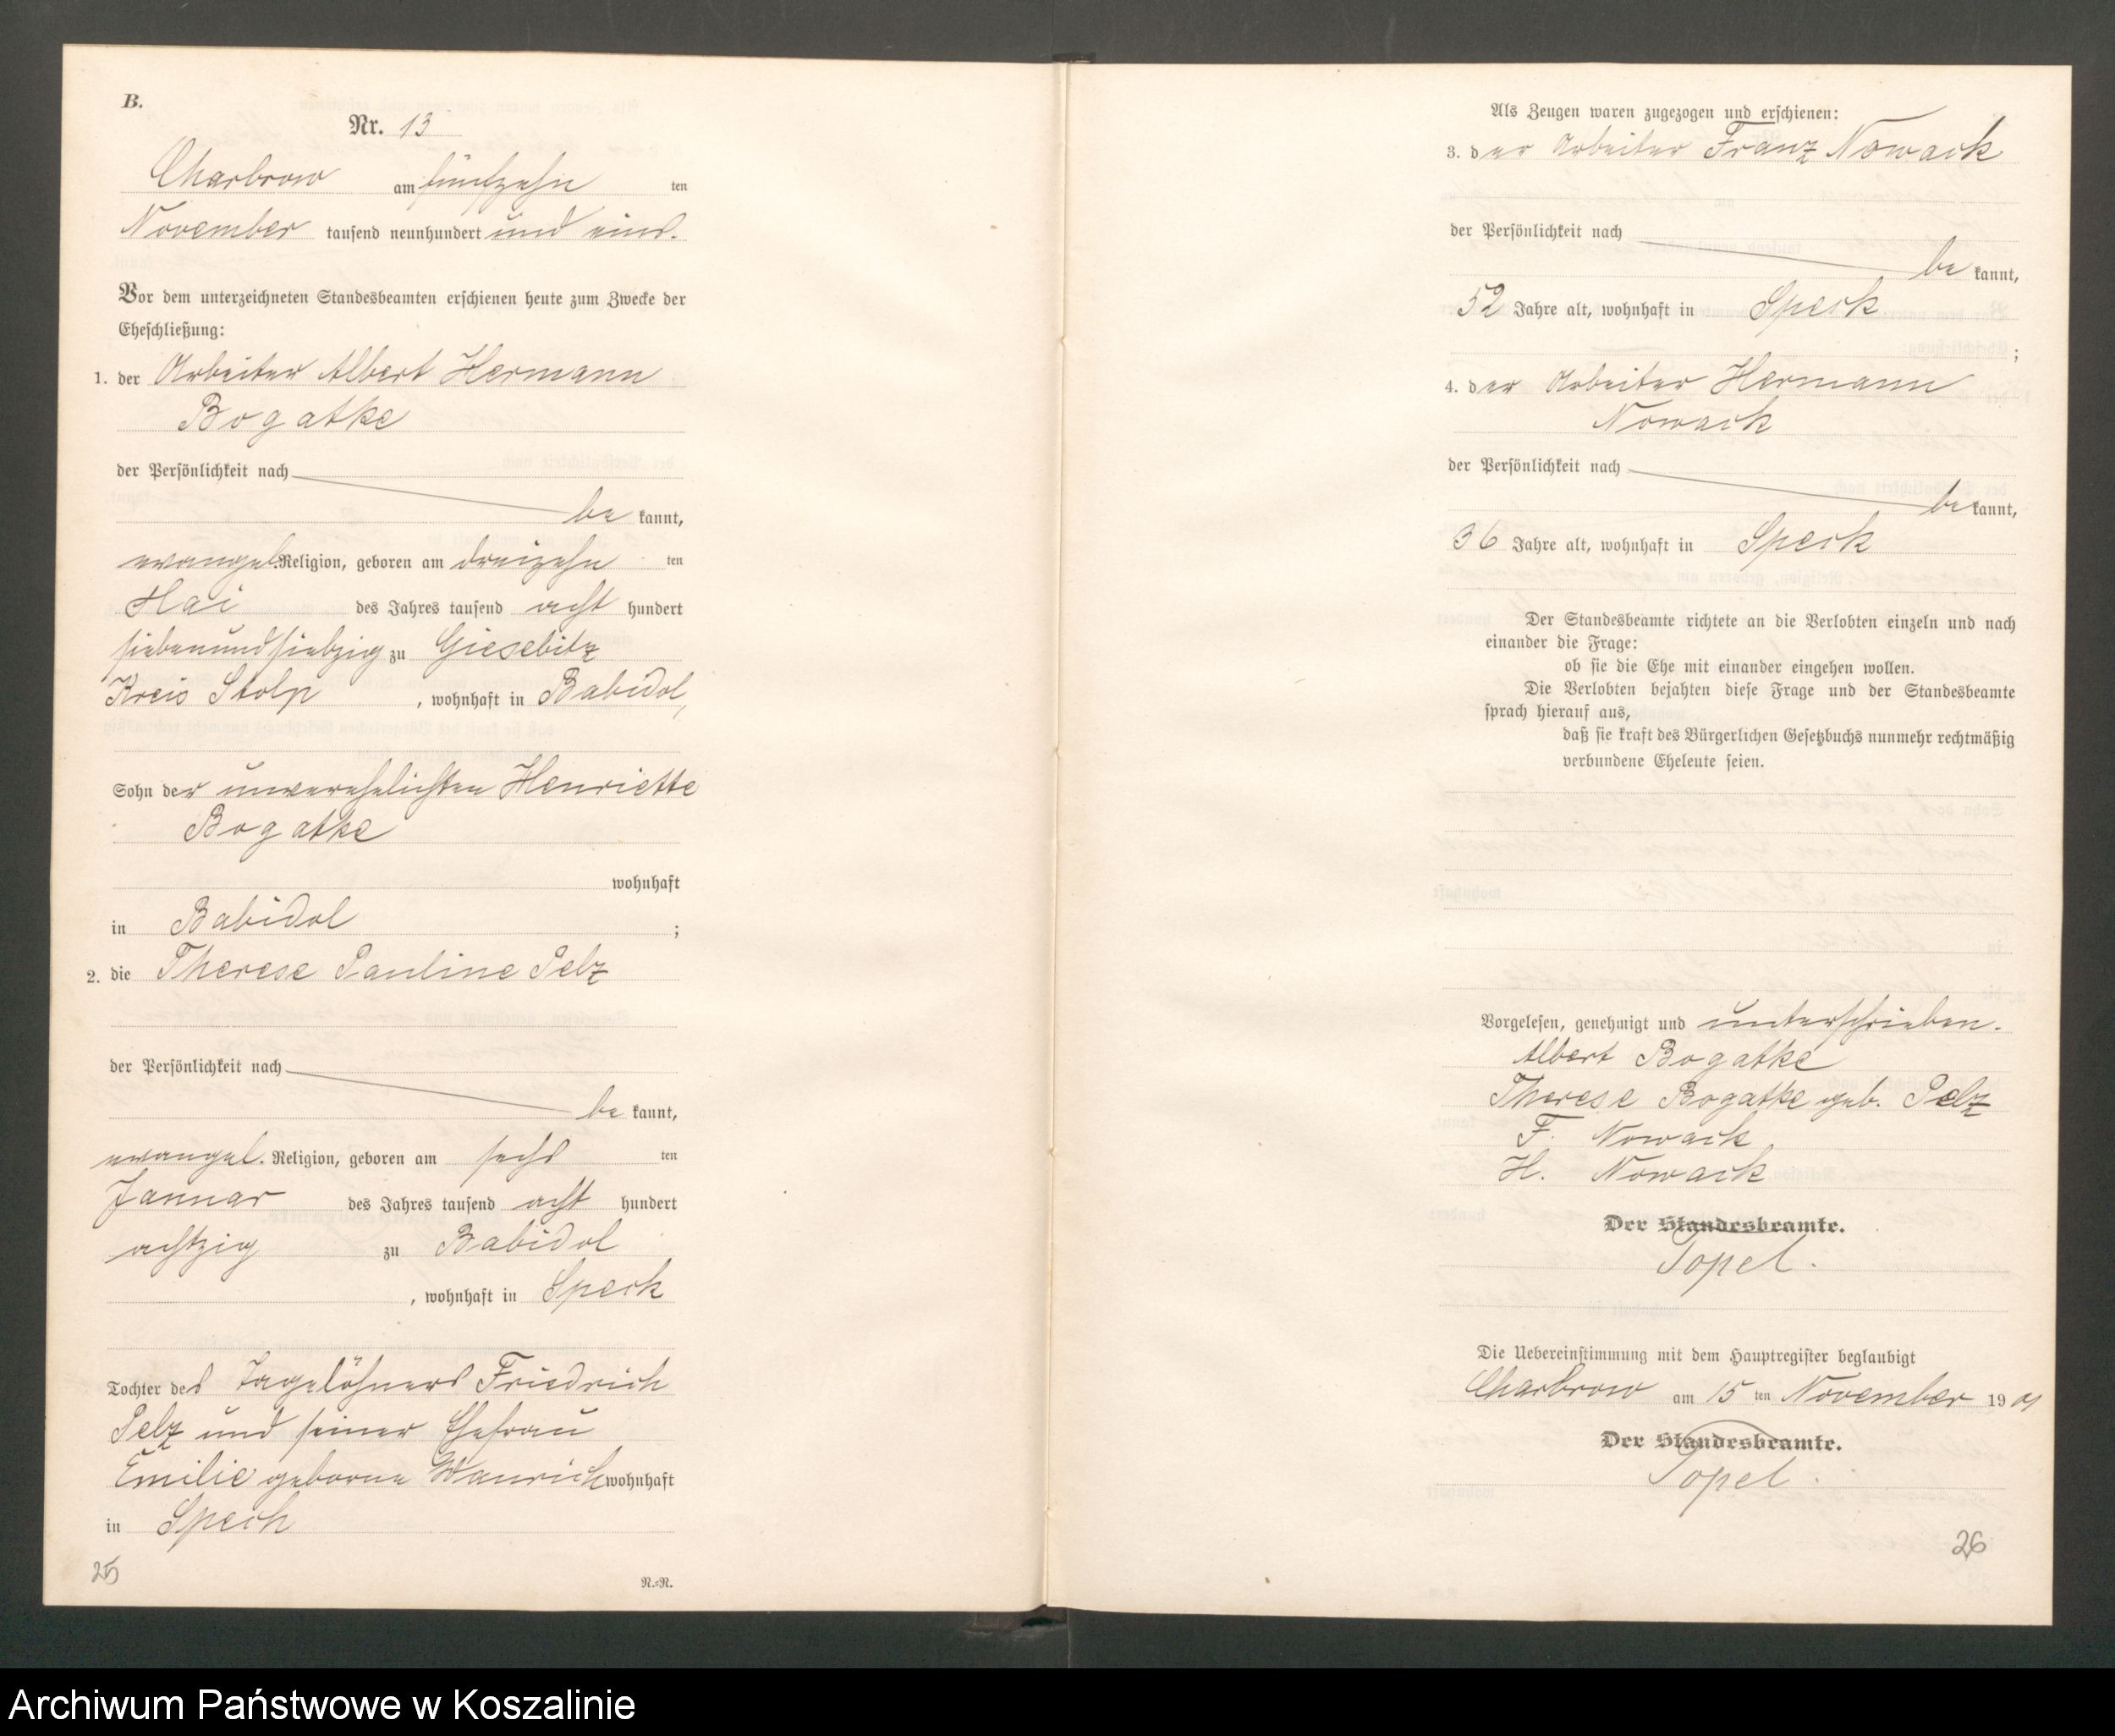 B.
Nr. 13
Charbrow am fünfzehn ten
November tausend neunhundert und eins.
Vor dem unterzeichneten Standesbeamten erschienen heute zum Zwecke der
Eheschließung:
1. der Arbeiter Albert Hermann
Bogatke
der Persönlichkeit nach
be kannt,
evangel. Religion, geboren am dreizehn ten
Mai des Jahres tausend acht hundert
siebenundsiebzig zu Giesebitz
Kreis Stolp, wohnhaft in Babidol,
Sohn der unverehelichten Henriette
Bogatke
wohnhaft
in Babidol ;
2. die Therese Pauline Pelz
der Persönlichkeit nach
be kannt,
evangel. Religion, geboren am sechs ten
Januar des Jahres tausend acht hundert
achtzig zu Babidol
, wohnhaft in Speck
Tochter des Tagelöhners Friedrich
Pelz und seiner Ehefrau
Emilie geborne Wanrich wohnhaft
in Speck
25
N.=N.
Als Zeugen waren zugezogen und erschienen:
3. der Arbeiter Franz Nowack
der Persönlichkeit nach
be kannt,
52 Jahre alt, wohnhaft in Speck
;
4. der Arbeiter Hermann
Nowack
der Persönlichkeit nach
be kannt,
36 Jahre alt, wohnhaft in Speck
Der Standesbeamte richtete an die Verlobten einzeln und nach
einander die Frage:
ob sie die Ehe mit einander eingehen wollen.
Die Verlobten bejahten diese Frage und der Standesbeamte
sprach hierauf aus,
daß sie kraft des Bürgerlichen Gesetzbuchs nunmehr rechtmäßig
verbundene Eheleute seien.
Vorgelesen, genehmigt und unterschrieben.
Albert Bogatke
Therese Bogatke geb. Pelz
F. Nowack
H. Nowack
Der Standesbeamte.
Topel.
Die Uebereinstimmung mit dem Hauptregister beglaubigt
Charbrow am 15 ten November 19 01
Der Standesbeamte.
Topel.
26
Archiwum Państwowe w Koszalinie